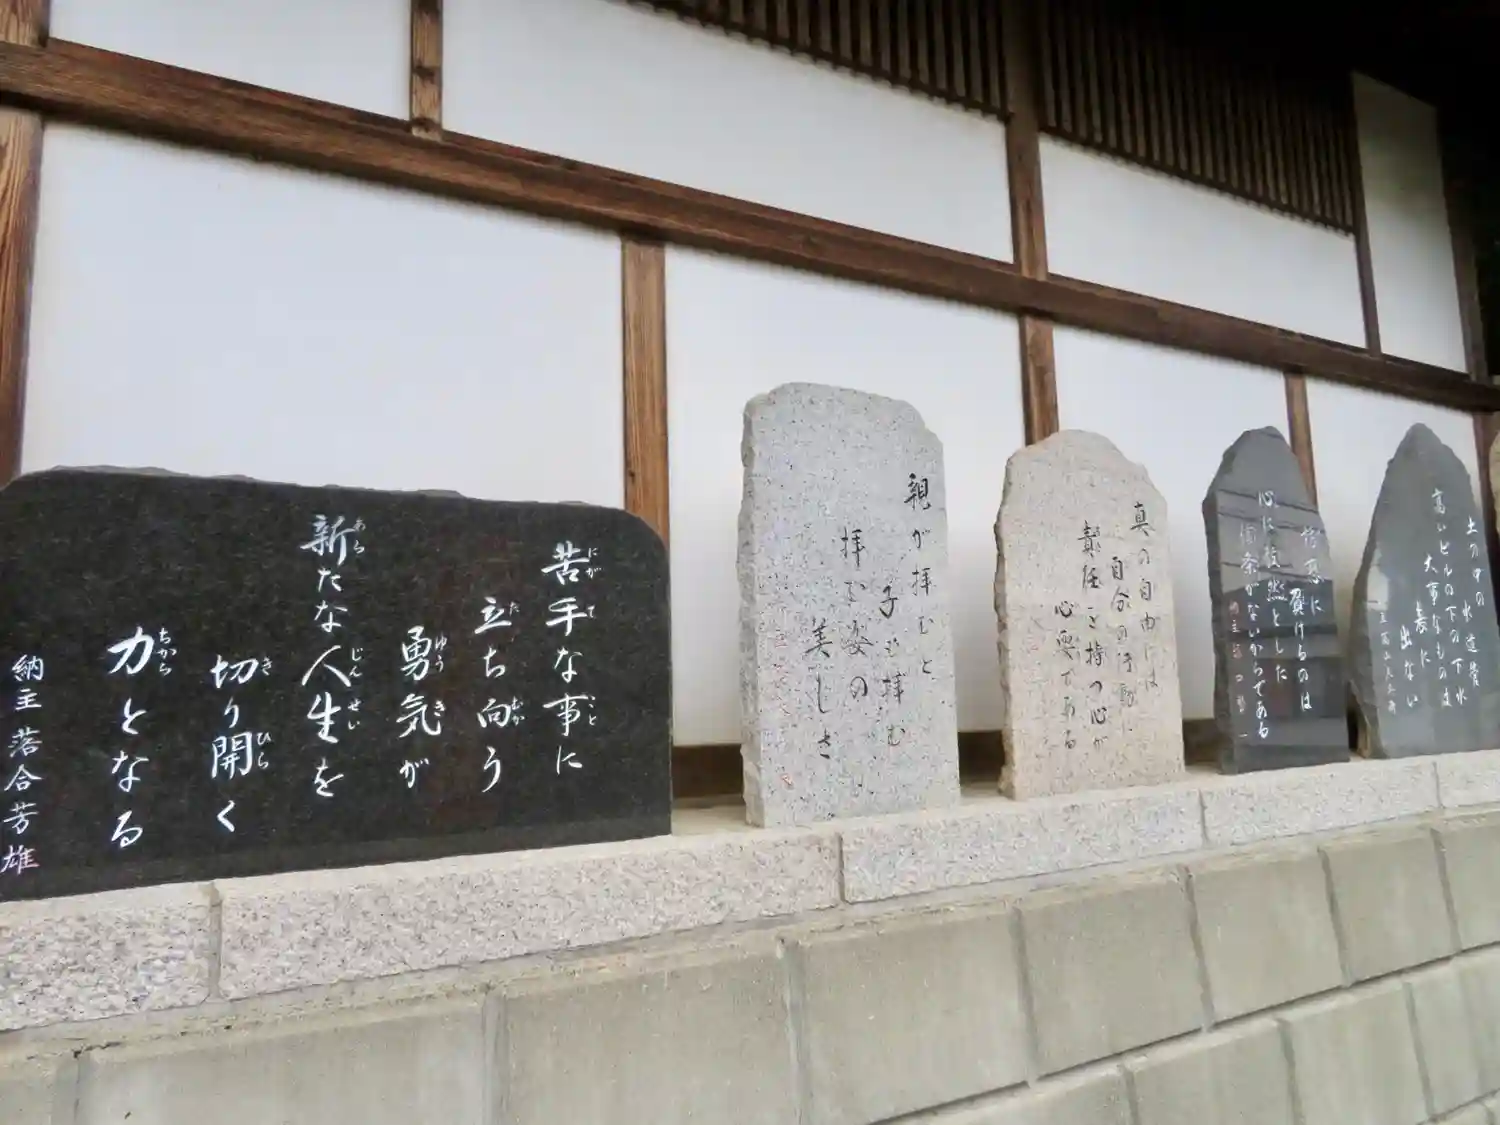 苦手な事に
立ち向う
勇気が
新たな人生を
切り開く
力となる
納主 落合芳雄
親が拝むと
子も拝む
拝む姿の
美しさ
真の自由には
自分の行動に
責任を持つ心が
必要である
誘惑に負けるのは
心に毅然とした
信条がないからである
土の中の水道管
高いビルの下の下水
大事なものは
表に出ない